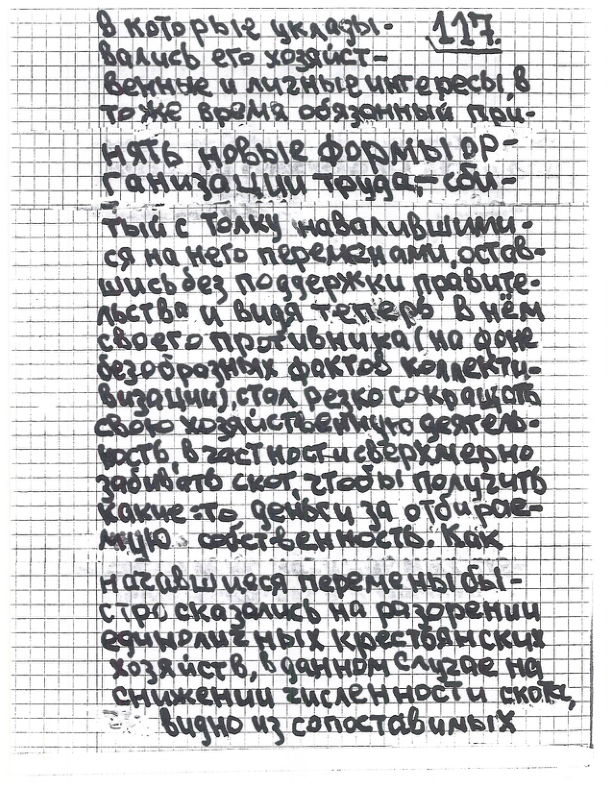 в которые уклады-
117.
вались его хозяйст-
венные и личные интересы, в
то же время обязанный при-
нять новые формы ор-
ганизации труда,-сби-
тый с толку навалившими-
ся на него переменами, остав-
шись без поддержки правите-
льства и видя теперь в нём
своего противника (на фоне
безобразных фактов коллекти-
визации), стал резко сокращать
свою хозяйственную деятель-
ность, в частности сверхмерно
забивать скот, чтобы получить
какие-то деньги за отбирае-
мую собственность. Как
начавшиеся перемены бы-
стро сказались на разорении
единоличных крестьянских
хозяйств, в данном случае на
снижении численности скота,
видно из сопоставимых